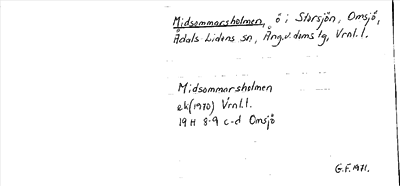 Midsommarsholmen, ö i Storsjön, Omsjö,
Ådals Lidens sn, Ång.v.doms tg, Vrnl.l.
Midsommarsholmen
ek (1970) Vrnl.l.
19 H 8-9 c-d Omsjö
G.F. 1971.